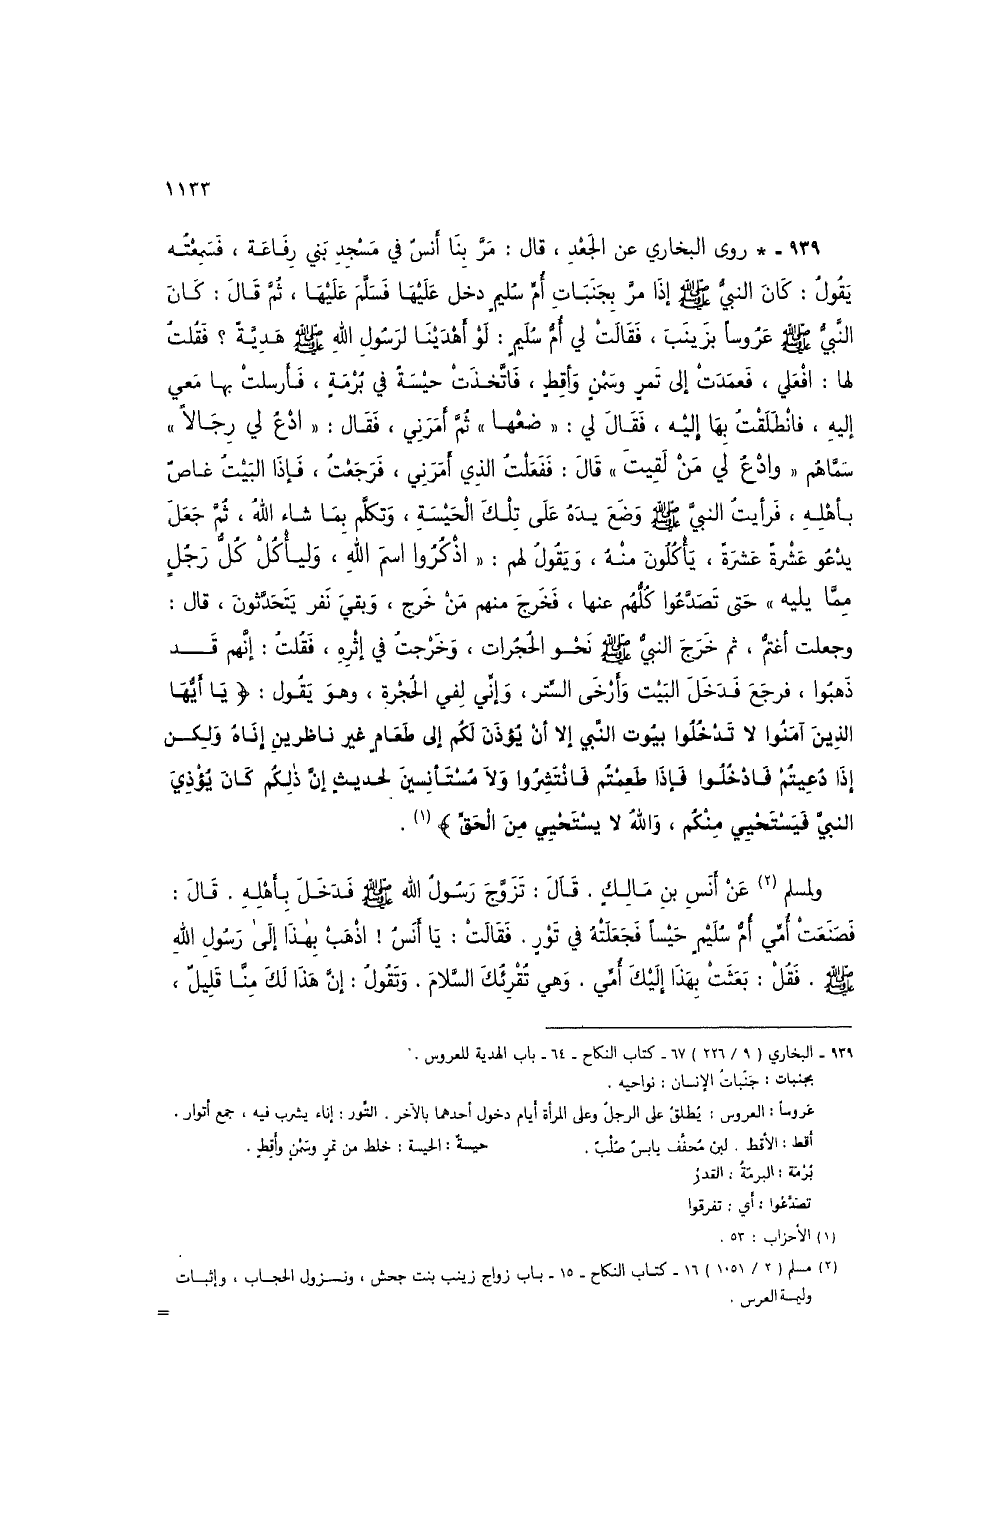 ١١٣٣
٩٣٩ - * روى البخاري عن الجَعْدِ ، قال : مَرَّ بِنَا أَنسٌ في مَسْجِدِ بَني رِفَاعَة ، فَسَمِعْتُه
يَقُولُ : كَانَ النبيُّ ﷺ إذَا مرَّ بِجَنَبَاتِ أُمِّ سُليمٍ دخل عَلَيْهَا فَسَلَّمَ عَلَيْهَا ، ثُمَّ قَالَ : كَانَ
النَّبيُّ ﷺ عَرُوساً بزَينَبَ ، فَقَالَتْ لي أُمُّ سُلَيمٍ : لَوْ أَهْدَيْنَا لرَسُولِ اللهِ ﷺ هَدِيَّةً ؟ فَقُلتُ
لها : افْعَلي ، فَعمَدَتْ إلى تَمرٍ وسَمْنٍ وَأَقِطٍ ، فَاتَّخذَتْ حيْسَةً في بُرْمَةٍ ، فَأرسلتْ بها مَعي
إليهِ ، فانْطَلَقْتُ بهَا إلَيْه ، فَقَالَ لي : « ضَعْها » ثُمَّ أَمَرَني ، فَقَال : « ادْعُ لي رِجَالاً »
سَمَّاهُم « وادْعُ لي مَنْ لَقِيتَ » قَالَ : فَفَعَلْتُ الذي أَمَرَنِي ، فَرَجَعْتُ ، فَإذَا البَيْتُ غاصٌ
بأهْلِهِ ، فَرأيتُ النبيَّ ﷺ وَضَعَ يدَهُ عَلَى تِلْكَ الْحَيْسَةِ ، وَتكلَّم بِمَا شاء اللهُ ، ثُمَّ جَعَلَ
يدْعُو عَشْرةً عَشرَةً ، يَأْكُلُونَ منْهُ ، وَيَقُولُ لهم : « اذْكُرُوا اسمَ اللهِ ، وَليأكُلْ كُلُّ رَجُلٍ
مِمَّا يليه » حَتى تَصَدَّعُوا كُلُّهُم عنها ، فَخَرجَ منهم مَنْ خَرج ، وَبقيَ نَفر يَتَحَدَّثونَ ، قال :
وجعلت أغتمُّ ، ثم خَرَجَ النبيُّ ﷺ نَحْو الحُجُرات ، وَخَرْجتُ في إثْرِهِ ، فَقُلتُ : إنَّهم قَد
ذَهبُوا ، فرجَعَ فَدَخَلَ البَيْت وَأَرْخَى السِّتر ، وَإنِّي لفِي الحُجْرةِ ، وهوَ يَقُول : ﴿ يَا أَيُّهَا
الذِينَ آمَنُوا لا تَدْخُلُوا بيُوت النَّبي إلا أنْ يُؤذَنَ لَكُم إلى طَعَامٍ غير ناظرينِ إنَاهُ وَلكِن
إذَا دُعِيتُمْ فَادْخُلُوا فَإذَا طَعِمْتُم فَانْتَشِرُوا وَلاَ مُسْتَأنِسينَ لحديثٍ إنَّ ذٰلِكُم كَانَ يُؤْذِيَ
النبيَّ فَيَسْتَحْيِي مِنْكُم ، وَاللهُ لا يسْتَحْيِي مِنَ الْحَقِّ ﴾ (١) .
ولمسلم (٢) عَنْ أَنَسِ بنِ مَالِكٍ . قَالَ : تَزَوَّجَ رَسُولُ اللهِ ﷺ فَدَخَلَ بِأَهْلِهِ . قَالَ :
فَصَنَعَتْ أُمِّي أُمُّ سُلَيْمٍ حَيْساً فَجَعَلَتْهُ فِي تَوْرٍ . فَقَالَتْ : يَا أَنَسُ ! اذْهَبْ بِهٰذَا إلَىٰ رَسُولِ اللهِ
ﷺ . فَقُلْ : بَعَثَتْ بِهَذَا إلَيْكَ أُمِّي . وَهي تُقْرِئُكَ السَّلاَمَ . وَتَقُولُ : إنَّ هَذَا لَكَ مِنَّا قَلِيلٌ ،
٩٣٩ - البخاري ( ٩ / ٢٢٦ ) ٦٧ - كتاب النكاح - ٦٤ - باب الهدية للعروس .
بجنبات : جَنَباتُ الإنسان : نواحيه .
عَروساً : العروس : يُطلقُ على الرجلُ وعلى المرأة أيام دخول أحدهما بالآخر . التَّور : إناء يشرب فيه ، جمع أتوار .
أَقط : الأقط . لبن مُجفَّف يابسٌ صُلْبٌ . حيسةٌ : الحيسة : خلط من تمرٍ وسَمْنٍ وأَقِطٍ .
بُرْمَة : البرمَةُ : القدرُ
تصدَّعُوا : أي : تفرقوا
(١) الأحزاب : ٥٣ .
(٢) مسلم ( ٢ / ١٠٥١ ) ١٦ - كتاب النكاح - ١٥ - باب زواج زينب بنت جحش ، ونزول الحجاب ، وإثبات
وليمة العرس .
=